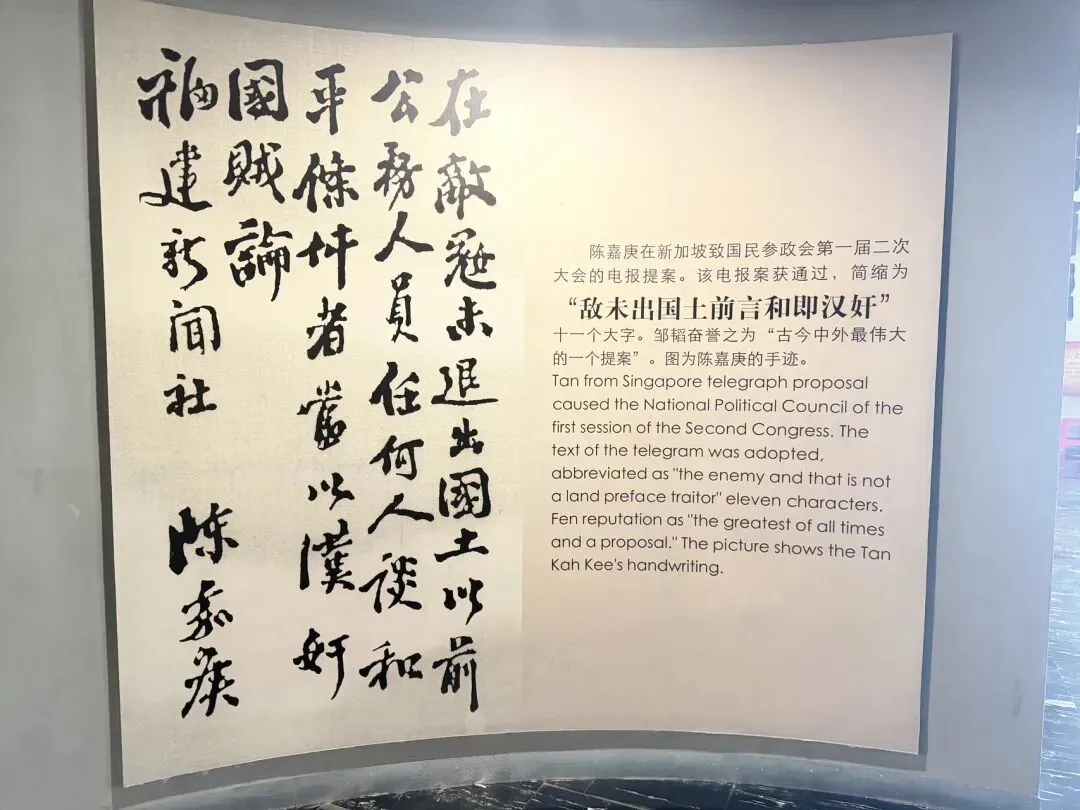 在敵寇未退出國土以前
公務人員任何人談和
平條件者當以漢奸
國賊論
福建新聞社 陳嘉庚
陈嘉庚在新加坡致国民参政会第一届二次
大会的电报提案。该电报案获通过，简缩为
“敌未出国土前言和即汉奸”
十一个大字。邹韬奋誉之为“古今中外最伟大
的一个提案”。图为陈嘉庚的手迹。
Tan from Singapore telegraph proposal
caused the National Political Council of the
first session of the Second Congress. The
text of the telegram was adopted,
abbreviated as "the enemy and that is not
a land preface traitor" eleven characters.
Fen reputation as "the greatest of all times
and a proposal." The picture shows the Tan
Kah Kee's handwriting.